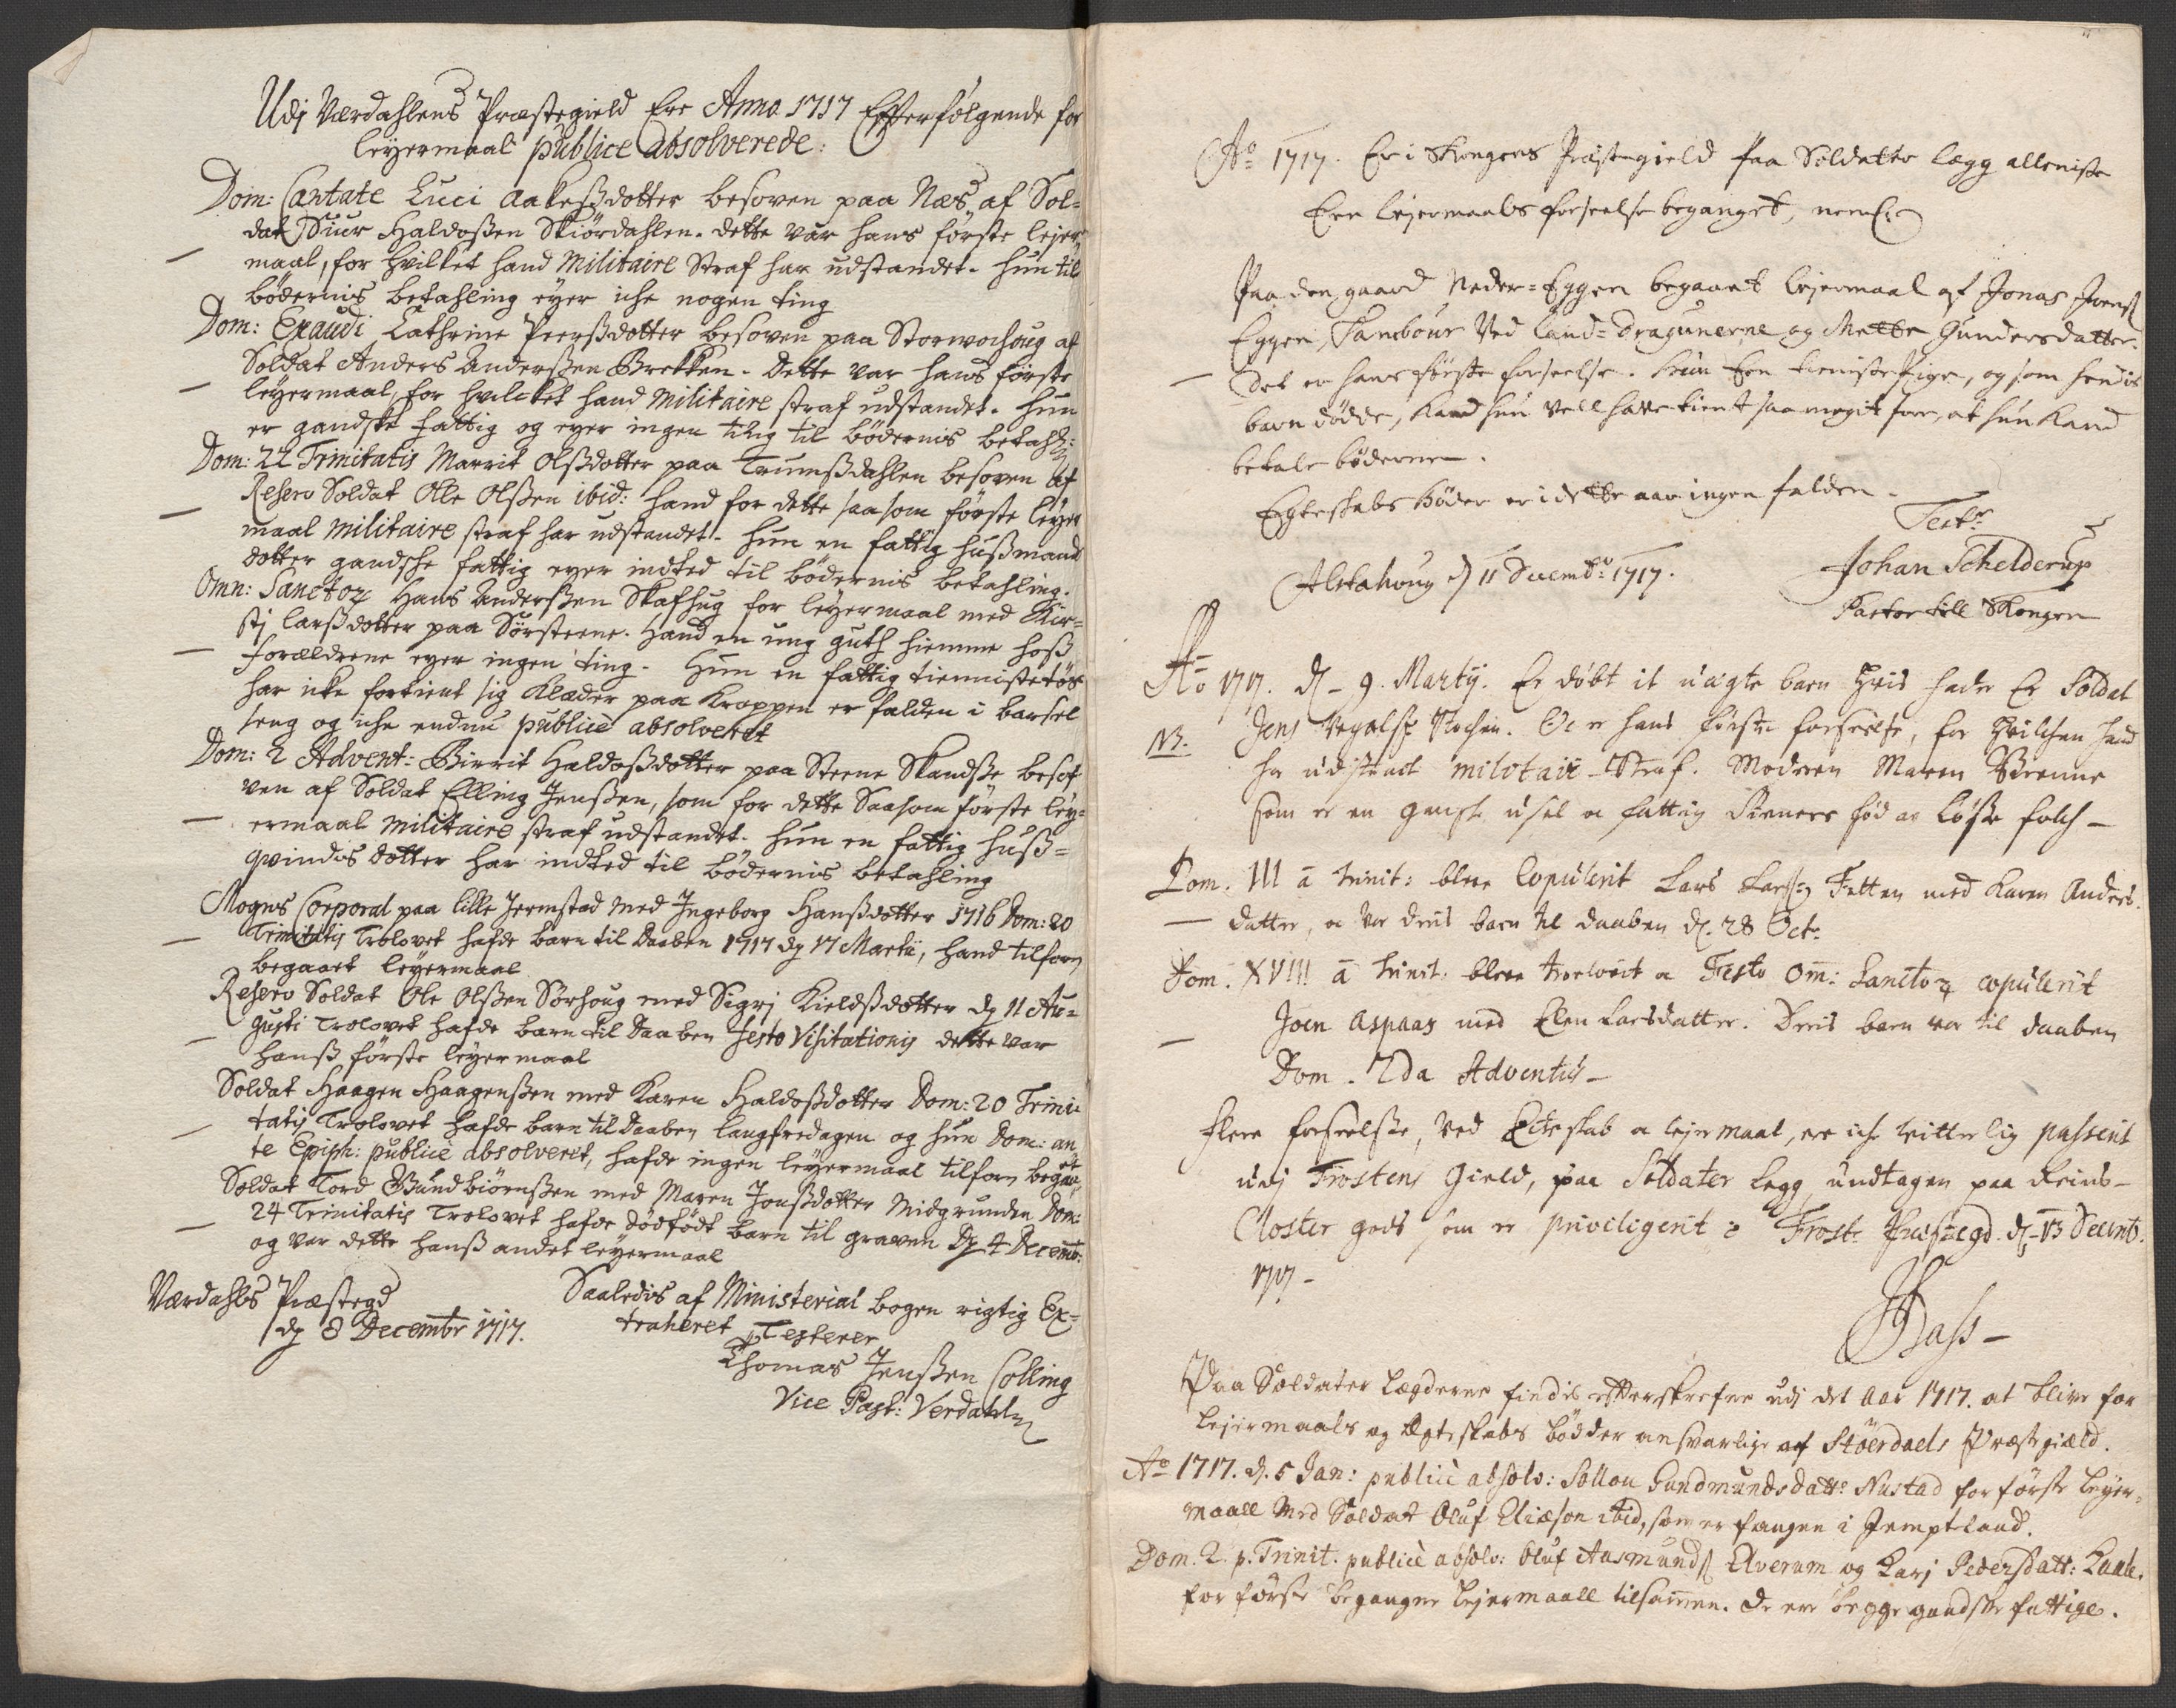 Udj Værdahlens Præstegield Ere Anno 1717 Efterfølgende for
leyermaal publice absolverede:
Dom: Cantate Luci Aakeßdotter besoven paa Næs af Sol-
dat Siur Haldoßen Skiördahlen. dette var hans förste lejer-
maal, for hvilket hand Militaire Straf har udstandet. hun til
bödernis betahling eyer iche nogen ting
Dom: Exaudi Cathrine Peerßdotter besoven paa Storwochoug af
Soldat Anders Anderßen Brekken. Dette var hans förste
leyermaal, for hvilcket hand Militaire straf udstandet. Hun
er gandske fattig og eyer ingen ting til bödernis betahl:
Dom: 22 Trinitatis Marrit Olßdotter paa Trumßdahlen besoven af
Reserv Soldat Olle Olßen ibid: hand for dette saasom förste leyer
maal militaire straf har udstandet. hun en fattig hußmands
dotter gandsche fattig eyer indted til bödernis betahling.
Omn: Sanctor Hans Anderßen Skafhug for leyermaal med Kir-
stj larßdotter paa Sörsteene. Hand en ung guth hiemme hoß
foraeldrene eyer ingen ting. Hun en fattig tiennistetös
har icke fortient sig Klæder paa Kroppen er falden i barsel
seng og iche endnu publice absolveret
Dom: 2 Advent: Birrit Haldoßdotter paa Steene Skandße besof
ven af Soldat Elling Jenßen, som for dette Saasom förste ley-
ermaal militaire straf udstandet. hun en fattig huß-
qvindes dotter har indted til bödernis betahling
Mogns Corporal paa lille Jermstad med Ingeborg Hanßdotter 1716 Dom: 20
Trinitatis Trolovet hafde barn til Daaben 1717 dy 17 Martii, hand tilforn
begaaet leyermaal
Reserv Soldat Ole Olßen Sörhoug med Sigrj Kieldßdotter dy 11 Au-
gusti Trolovet hafde barn til Daaben festo Visitationis dette var
hanß förste leyermaal
Soldat Haagen Haagenßen med Karen Haldoßdotter Dom: 20 Trini-
tatis Trolovet hafde barn til Daaben langfredagen og hun Dom: an
te Epiph: publice absolveret, hafde ingen leyermaal tilforn begaaet
Soldat Tord Gundbiörnßen med Maren Jonßdotter Midgrunden Dom:
24 Trinitatis Trolovet hafde dödfödt barn til graven Dy 4 Decembr:
og var dette hanß andet leyermaal
Værdahls Præstegd
dy 8 Decembr 1717.
Saaledis af Ministerial bogen rigtig Ex-
traheret Testerer
Thomas Jenßen Colling
Vice Past: Verdahln
Ao 1717. Er i Skongens Præstegield paa Soldatter lægg alleniste
Een lejermaals forseelse beganget, neml:
Paa den gaard Neder-Eggen begaaet lejermaal af Jonas Joens
Eggen, Tambour Ved Land-Dragunerne og Mette Gundersdatter.
Det er hans förste forseelse. hun Een tieniste Pige, og som hendis
barn dödde, kand hun vell have tient saa megit for, at hun kand
betale böderne.
Egteskabs Böder er i dette aar ingen falden.
Alstahoug d 11 Decembr 1717.
Test.
Johan Schelderup
Pastor till Skongen
Ao 1717. d - 9. Martij. Er döbt it uægte barn hvis fader Er Soldat
NB. Jens Vegalsen . Det er hans förste forseelse, for hvilchen hand
har udstaaet militair-Straf. Moderen Maren Brenne
som er en gansche usel a fattig Tieners fød af løsse folch -
Dom. III a trinit: bleve Copulerit Lars Larsen Fetten med Karen Anders-
datter, a var deris barn til daaben d. 28 Oct.
Dom. XVIII a trinit: bleve troelovit a Festo Om: Sanctor copulerit
Joen Aspaas med Elen Larsdatter. Deris barn var til daaben
Dom. 2da Adventus -
flere forseelse, ved Ecteskab a lejermaal, er iche witterlig passerit
udj Frostens Gield, paa Soldater Legg, undtagen paa Reins-
Closter gods som er priviligerit : Frost: Præstegd. d. 13 Decemb.
1717 -
Hass -
Paa Soldater Lægderne findis efterskrefne udj det Aar 1717. at blive for
Lejermaals og Ægteskabs bödder ansvarlige af Stöerdaels Præstegiæld.
Ao 1717. d. 5 Jan: publicè absolv: Sollou Gundmundsdatt: Nustad for förste Leyer-
maall med Soldat Oluf Eliæson ibid, som er fangen i Jemptland.
Dom. 2. p. Trinit. publicè absolv: Oluf Aasmunds Elverum og Karj Pedersdatt:
for förste begangne Lejermaall tilsammen. de ere begge gandske fattige.